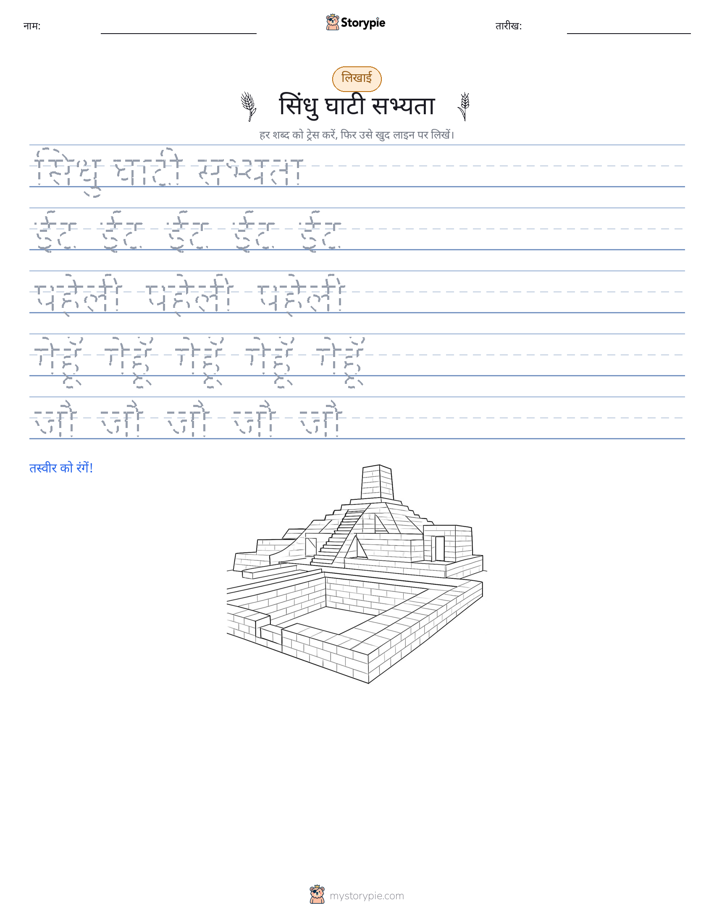 नाम:
Storypie
तारीख:
लिखाई
सिंधु घाटी सभ्यता
हर शब्द को ट्रेस करें, फिर उसे खुद लाइन पर लिखें।
सिंधु घाटी सभ्यता
ईंट ईंट ईंट ईंट ईंट
पहेली पहेली पहेली
गेहूँ गेहूँ गेहूँ गेहूँ गेहूँ
जौ जौ जौ जौ जौ
तस्वीर को रंगें!
mystorypie.com